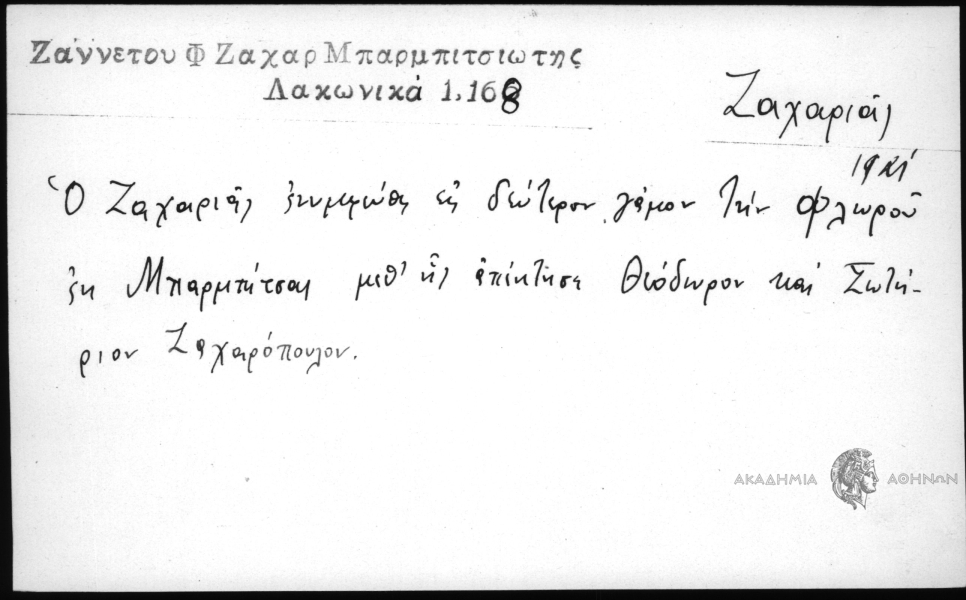 Ζαννετου Φ Ζαχαρ Μπαρμπιτσιωτης
Λακωνικά 1.168
Ζαχαριᾶς
Ὁ Ζαχαριᾶς ἐνυμφεύθη εἰς δεύτερον γάμον τὴν Φλωροῦ
ἐκ Μπαρμπίτσας μεθ' ἧς ἀπέκτησε Θεόδωρον καὶ Σωτή-
ριον Ζαχαρόπουλον.
ΑΚΑΔΗΜΙΑ ΑΘΗΝΩΝ